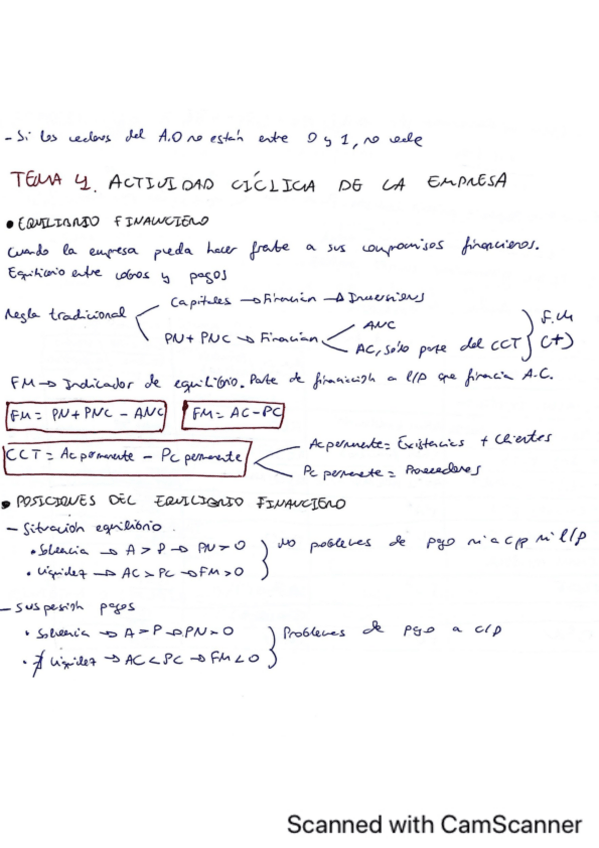 - Si los valores del A.O no están entre 0 y 1, no vale
TEMA 4. ACTIVIDAD CÍCLICA DE LA EMPRESA
• EQUILIBRIO FINANCIERO
Cuando la empresa pueda hacer frente a sus compromisos financieros.
Equilibrio entre cobros y pagos
Regla tradicional
Capitales → Financian → Inversiones
PN + PNC → Financian
ANC
AC, sólo parte del CCT
F.M
(+)
FM → Indicador de equilibrio. Parte de financiación a l/p que financia A.C.
FM = PN + PNC - ANC
FM = AC - PC
CCT = Ac permanente - Pc permanente
Ac permanente = Existencias + Clientes
Pc permanente = Proveedores
• POSICIONES DEL EQUILIBRIO FINANCIERO
- Situación equilibrio
• Solvencia → A > P → PN > 0
• Liquidez → AC > PC → FM > 0
No problemas de pago ni a c/p ni l/p
- Suspensión pagos
• Solvencia → A > P → PN > 0
• ∄ Liquidez → AC < PC → FM < 0
Problemas de pago a c/p
Scanned with CamScanner